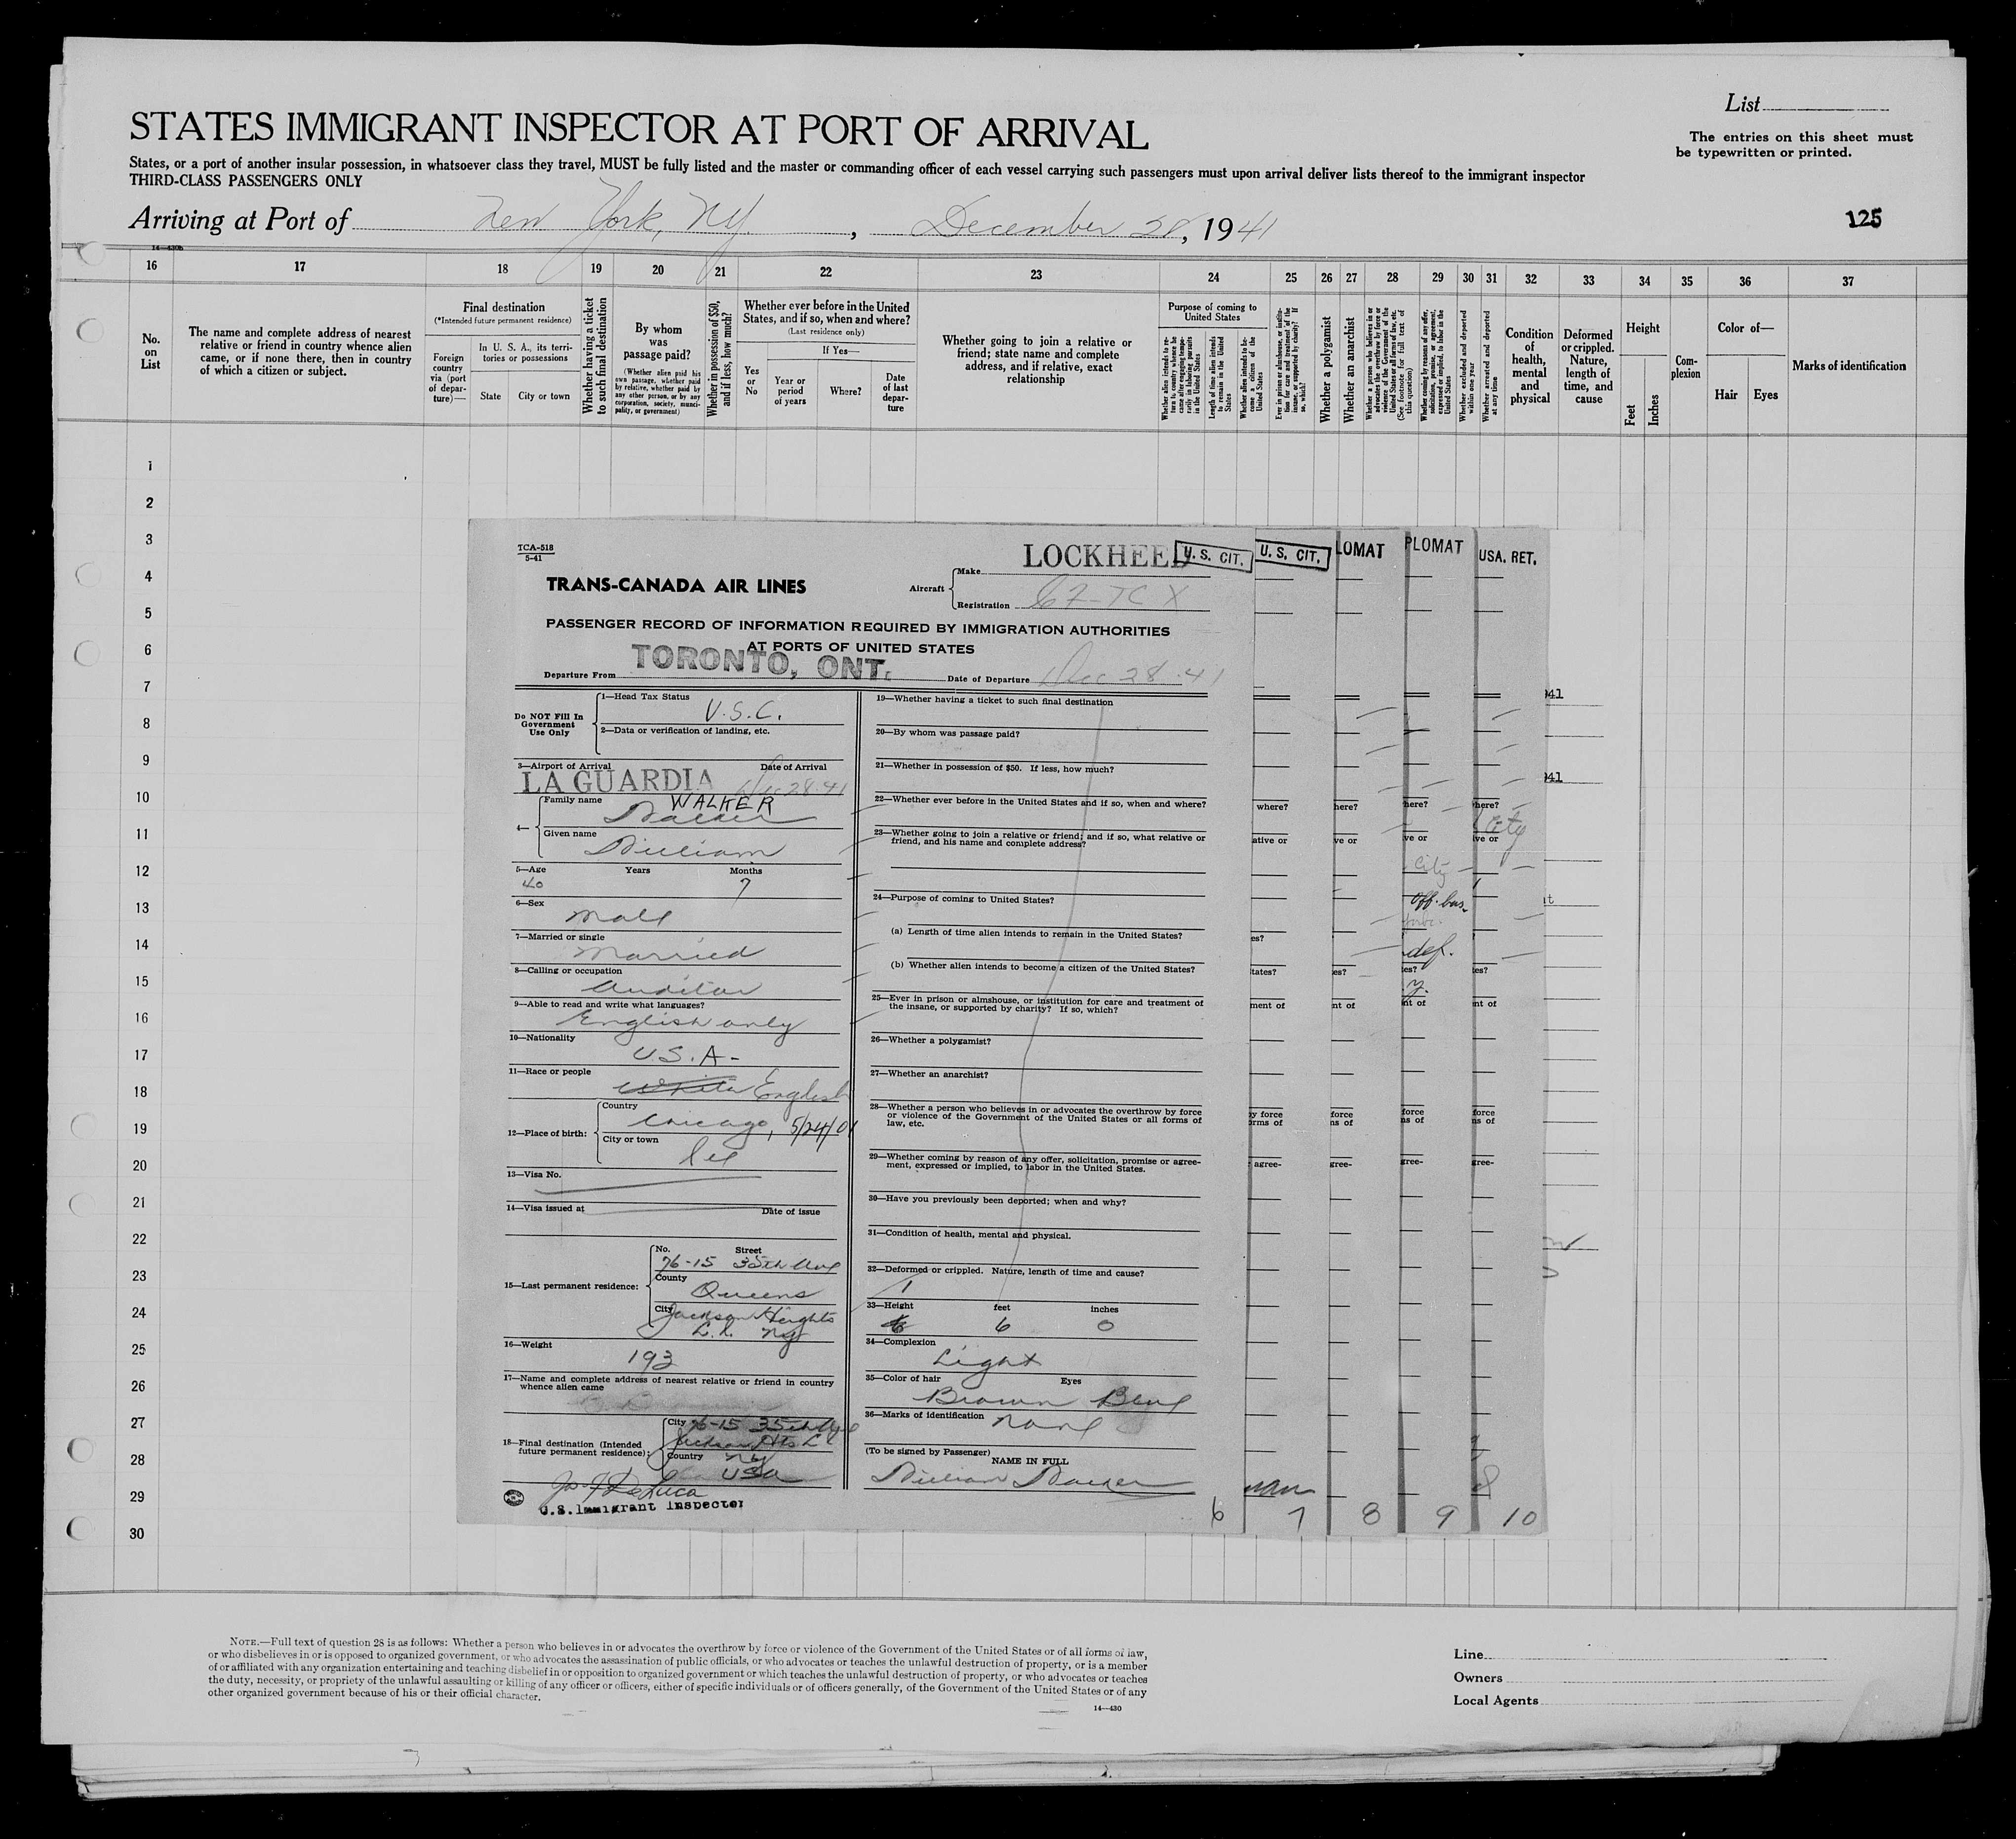 List
STATES IMMIGRANT INSPECTOR AT PORT OF ARRIVAL
The entries on this sheet must
be typewritten or printed.
States, or a port of another insular possession, in whatsoever class they travel, MUST be fully listed and the master or commanding officer of each vessel carrying such passengers must upon arrival deliver lists thereof to the immigrant inspector
THIRD-CLASS PASSENGERS ONLY
Arriving at Port of New York, NY. , December 28, 1941
125
14—430b
16 17 18 19 20 21 22 23 24 25 26 27 28 29 30 31 32 33 34 35 36 37
No. on List
The name and complete address of nearest
relative or friend in country whence alien
came, or if none there, then in country
of which a citizen or subject.
Final destination
(*Intended future permanent residence)
Foreign country via (port of departure)—
In U. S. A., its territories or possessions
State
City or town
Whether having a ticket to such final destination
By whom was passage paid?
(Whether alien paid his own passage, whether paid by relative, whether paid by any other person, or by any corporation, society, municipality, or government)
Whether in possession of $50, and if less, how much?
Whether ever before in the United States, and if so, when and where?
(Last residence only)
If Yes—
Yes or No
Year or period of years
Where?
Date of last departure
Whether going to join a relative or
friend; state name and complete
address, and if relative, exact
relationship
Purpose of coming to United States
Whether alien intends to return to country whence he came after engaging temporarily in laboring pursuits in the United States
Length of time alien intends to remain in the United States
Whether alien intends to become a citizen of the United States
Ever in prison or almshouse, or institution for care and treatment of the insane, or supported by charity? If so, which?
Whether a polygamist
Whether an anarchist
Whether a person who believes in or advocates the overthrow by force or violence of the Government of the United States or all forms of law, etc. (See footnote for full text of this question)
Whether coming by reasons of any offer, solicitation, promise, or agreement, expressed or implied, to labor in the United States
Whether excluded and deported within one year
Whether arrested and deported at any time
Condition of health, mental and physical
Deformed or crippled. Nature, length of time, and cause
Height
Feet
Inches
Complexion
Color of—
Hair
Eyes
Marks of identification
1
2
3
4
5
6
7
8
9
10
11
12
13
14
15
16
17
18
19
20
21
22
23
24
25
26
27
28
29
30
TCA-518
5-41
TRANS-CANADA AIR LINES
Aircraft
Make LOCKHEED
Registration CF-TCX
U. S. CIT.
U. S. CIT.
LOMAT
PLOMAT
USA. RET.
PASSENGER RECORD OF INFORMATION REQUIRED BY IMMIGRATION AUTHORITIES
AT PORTS OF UNITED STATES
Departure From TORONTO, ONT. Date of Departure Dec 28·41
Do NOT Fill In Government Use Only
1—Head Tax Status
U.S.C.
2—Data or verification of landing, etc.
3—Airport of Arrival Date of Arrival
LA GUARDIA Dec 28·41
4— Family name WALKER
Walker
Given name
William
5—Age Years Months
40 7
6—Sex
Male
7—Married or single
Married
8—Calling or occupation
Auditor
9—Able to read and write what languages?
English only
10—Nationality
U.S.A-
11—Race or people
White English
12—Place of birth:
Country
Chicago, 5/24/01
City or town
Ill
13—Visa No.
14—Visa issued at Date of issue
15—Last permanent residence:
No. Street
76-15 35th Ave
County
Queens
City Jackson Heights
L.I. NY
16—Weight
193
17—Name and complete address of nearest relative or friend in country
whence alien came
18—Final destination (Intended
future permanent residence):
City 76-15 35th Ave
Jackson Hts L I
Country NY
USA
Jos F DeLuca
U.S. Immigrant Inspector
19—Whether having a ticket to such final destination
20—By whom was passage paid?
21—Whether in possession of $50. If less, how much?
22—Whether ever before in the United States and if so, when and where?
23—Whether going to join a relative or friend; and if so, what relative or
friend, and his name and complete address?
24—Purpose of coming to United States?
(a) Length of time alien intends to remain in the United States?
(b) Whether alien intends to become a citizen of the United States?
25—Ever in prison or almshouse, or institution for care and treatment of
the insane, or supported by charity? If so, which?
26—Whether a polygamist?
27—Whether an anarchist?
28—Whether a person who believes in or advocates the overthrow by force
or violence of the Government of the United States or all forms of
law, etc.
29—Whether coming by reason of any offer, solicitation, promise or agree-
ment, expressed or implied, to labor in the United States.
30—Have you previously been deported; when and why?
31—Condition of health, mental and physical.
32—Deformed or crippled. Nature, length of time and cause?
33—Height feet inches
6 0
34—Complexion
Light
35—Color of hair Eyes
Brown Blue
36—Marks of identification None
(To be signed by Passenger)
NAME IN FULL
William Walker
6 7 8 9 10
where? here? here? here?
ative or ve or ve or ive or
City
City
off. bus.
def.
es?
tates? es? tes? tes?
ment of nt of nt of nt of
y force force force force
orms of ns of s of ns of
agree- gree- gree- gree-
941
941
NOTE.—Full text of question 28 is as follows: Whether a person who believes in or advocates the overthrow by force or violence of the Government of the United States or of all forms of law,
or who disbelieves in or is opposed to organized government, or who advocates the assassination of public officials, or who advocates or teaches the unlawful destruction of property, or is a member
of or affiliated with any organization entertaining and teaching disbelief in or opposition to organized government or which teaches the unlawful destruction of property, or who advocates or teaches
the duty, necessity, or propriety of the unlawful assaulting or killing of any officer or officers, either of specific individuals or of officers generally, of the Government of the United States or of any
other organized government because of his or their official character.
14—430
Line
Owners
Local Agents